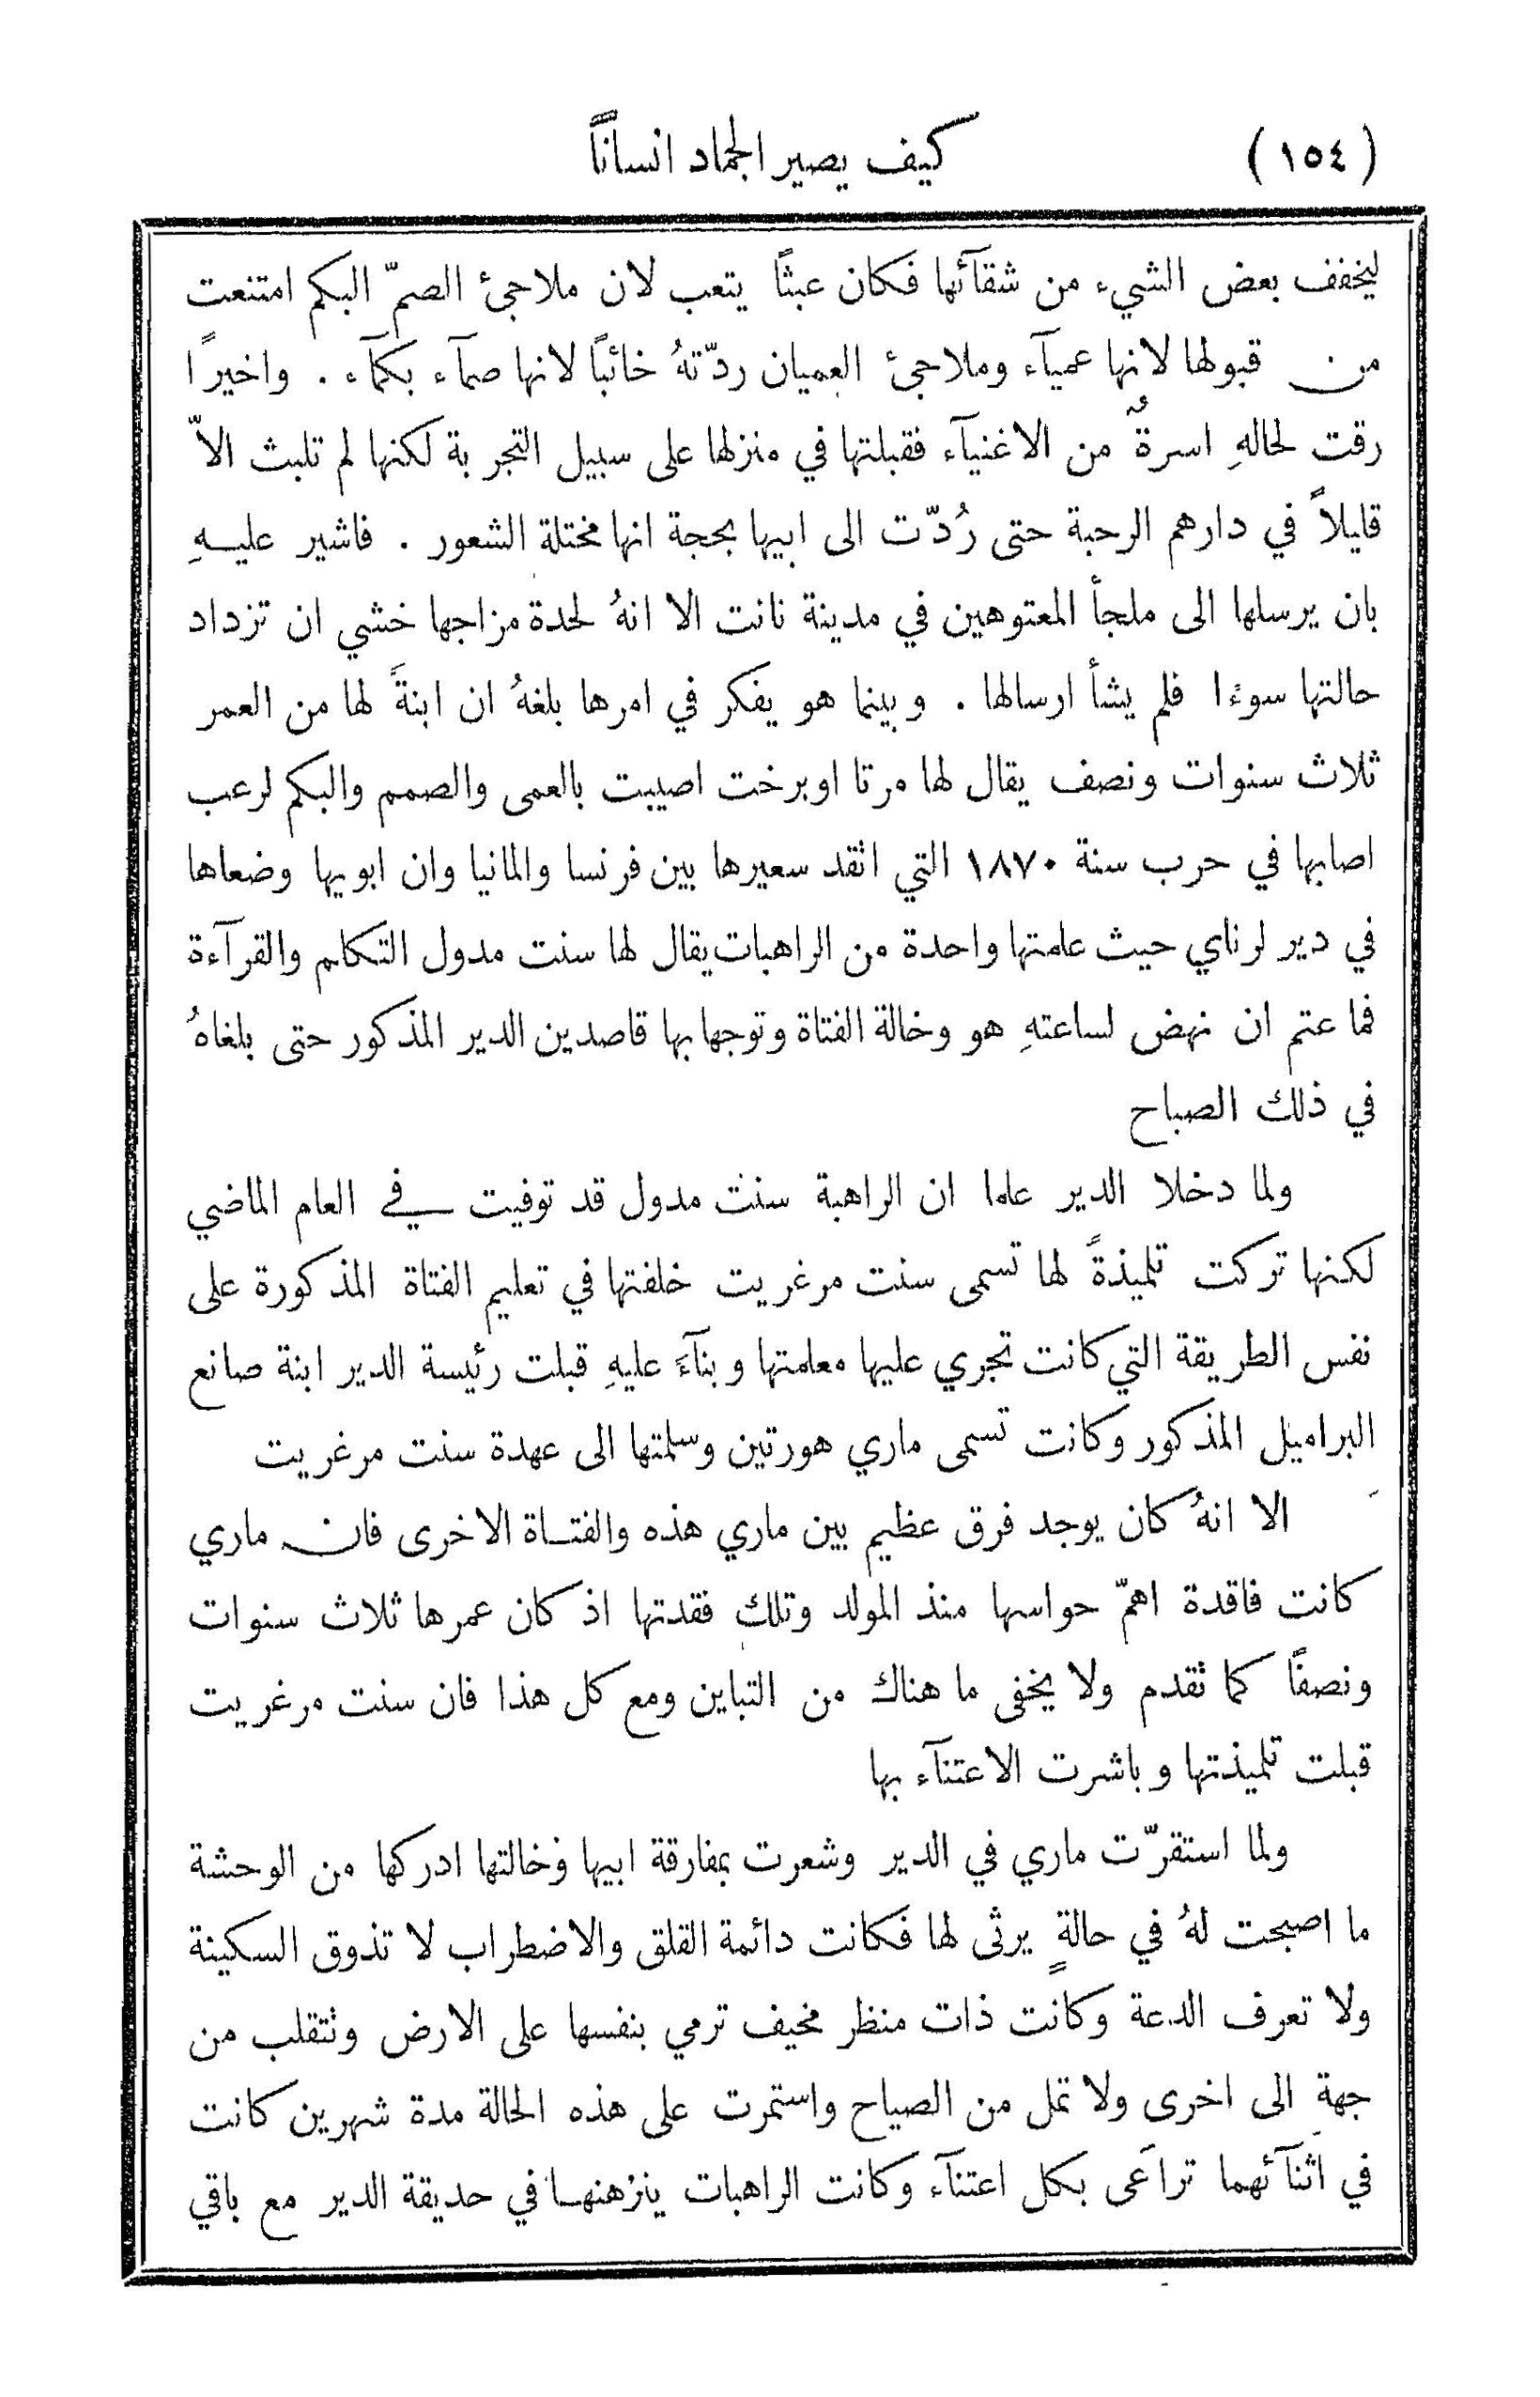 (١٥٤) كيف يصير الجماد انسانًا
ليخفف بعض الشيء من شقآئها فكان عبثًا يتعب لان ملاجئ الصمّ البكم امتنعت
من قبولها لانها عميآء وملاجئ العميان ردّتهُ خائبًا لانها صمآء بكمآء . واخيرًا
رقت لحالهِ اسرةٌ من الاغنيآء فقبلتها في منزلها على سبيل التجربة لكنها لم تلبث الاّ
قليلاً في دارهم الرحبة حتى رُدّت الى ابيها بحجة انها مختلة الشعور . فاشير عليـهِ
بان يرسلها الى ملجأ المعتوهين في مدينة نانت الا انهُ لحدة مزاجها خشي ان تزداد
حالتها سوءا فلم يشأ ارسالها . وبينما هو يفكر في امرها بلغهُ ان ابنةً لها من العمر
ثلاث سنوات ونصف يقال لها مرتا اوبرخت اصيبت بالعمى والصمم والبكم لرعب
اصابها في حرب سنة ١٨٧٠ التي اتقد سعيرها بين فرنسا والمانيا وان ابويها وضعاها
في دير لرناي حيث علمتها واحدة من الراهبات يقال لها سنت مدول التكلم والقرآءة
فما عتم ان نهض لساعتهِ هو وخالة الفتاة وتوجها بها قاصدين الدير المذكور حتى بلغاهُ
في ذلك الصباح
ولما دخلا الدير علما ان الراهبة سنت مدول قد توفيت في العام الماضي
لكنها تركت تلميذةً لها تسمى سنت مرغريت خلفتها في تعليم الفتاة المذكورة على
نفس الطريقة التي كانت تجري عليها معلمتها وبنآءً عليهِ قبلت رئيسة الدير ابنة صانع
البراميل المذكور وكانت تسمى ماري هورتين وسلمتها الى عهدة سنت مرغريت
الا انهُ كان يوجد فرق عظيم بين ماري هذه والفتـاة الاخرى فان ماري
كانت فاقدة اهمّ حواسها منذ المولد وتلك فقدتها اذ كان عمرها ثلاث سنوات
ونصفًا كما تقدم ولا يخفى ما هناك من التباين ومع كل هذا فان سنت مرغريت
قبلت تلميذتها وباشرت الاعتنآء بها
ولما استقرّت ماري في الدير وشعرت بمفارقة ابيها وخالتها ادركها من الوحشة
ما اصبحت لهُ في حالةٍ يرثى لها فكانت دائمة القلق والاضطراب لا تذوق السكينة
ولا تعرف الدعة وكانت ذات منظر مخيف ترمي بنفسها على الارض وتتقلب من
جهةٍ الى اخرى ولا تمل من الصياح واستمرت على هذه الحالة مدة شهرين كانت
في اثنآئهما تراعى بكل اعتنآء وكانت الراهبات ينزهنهـا في حديقة الدير مع باقي